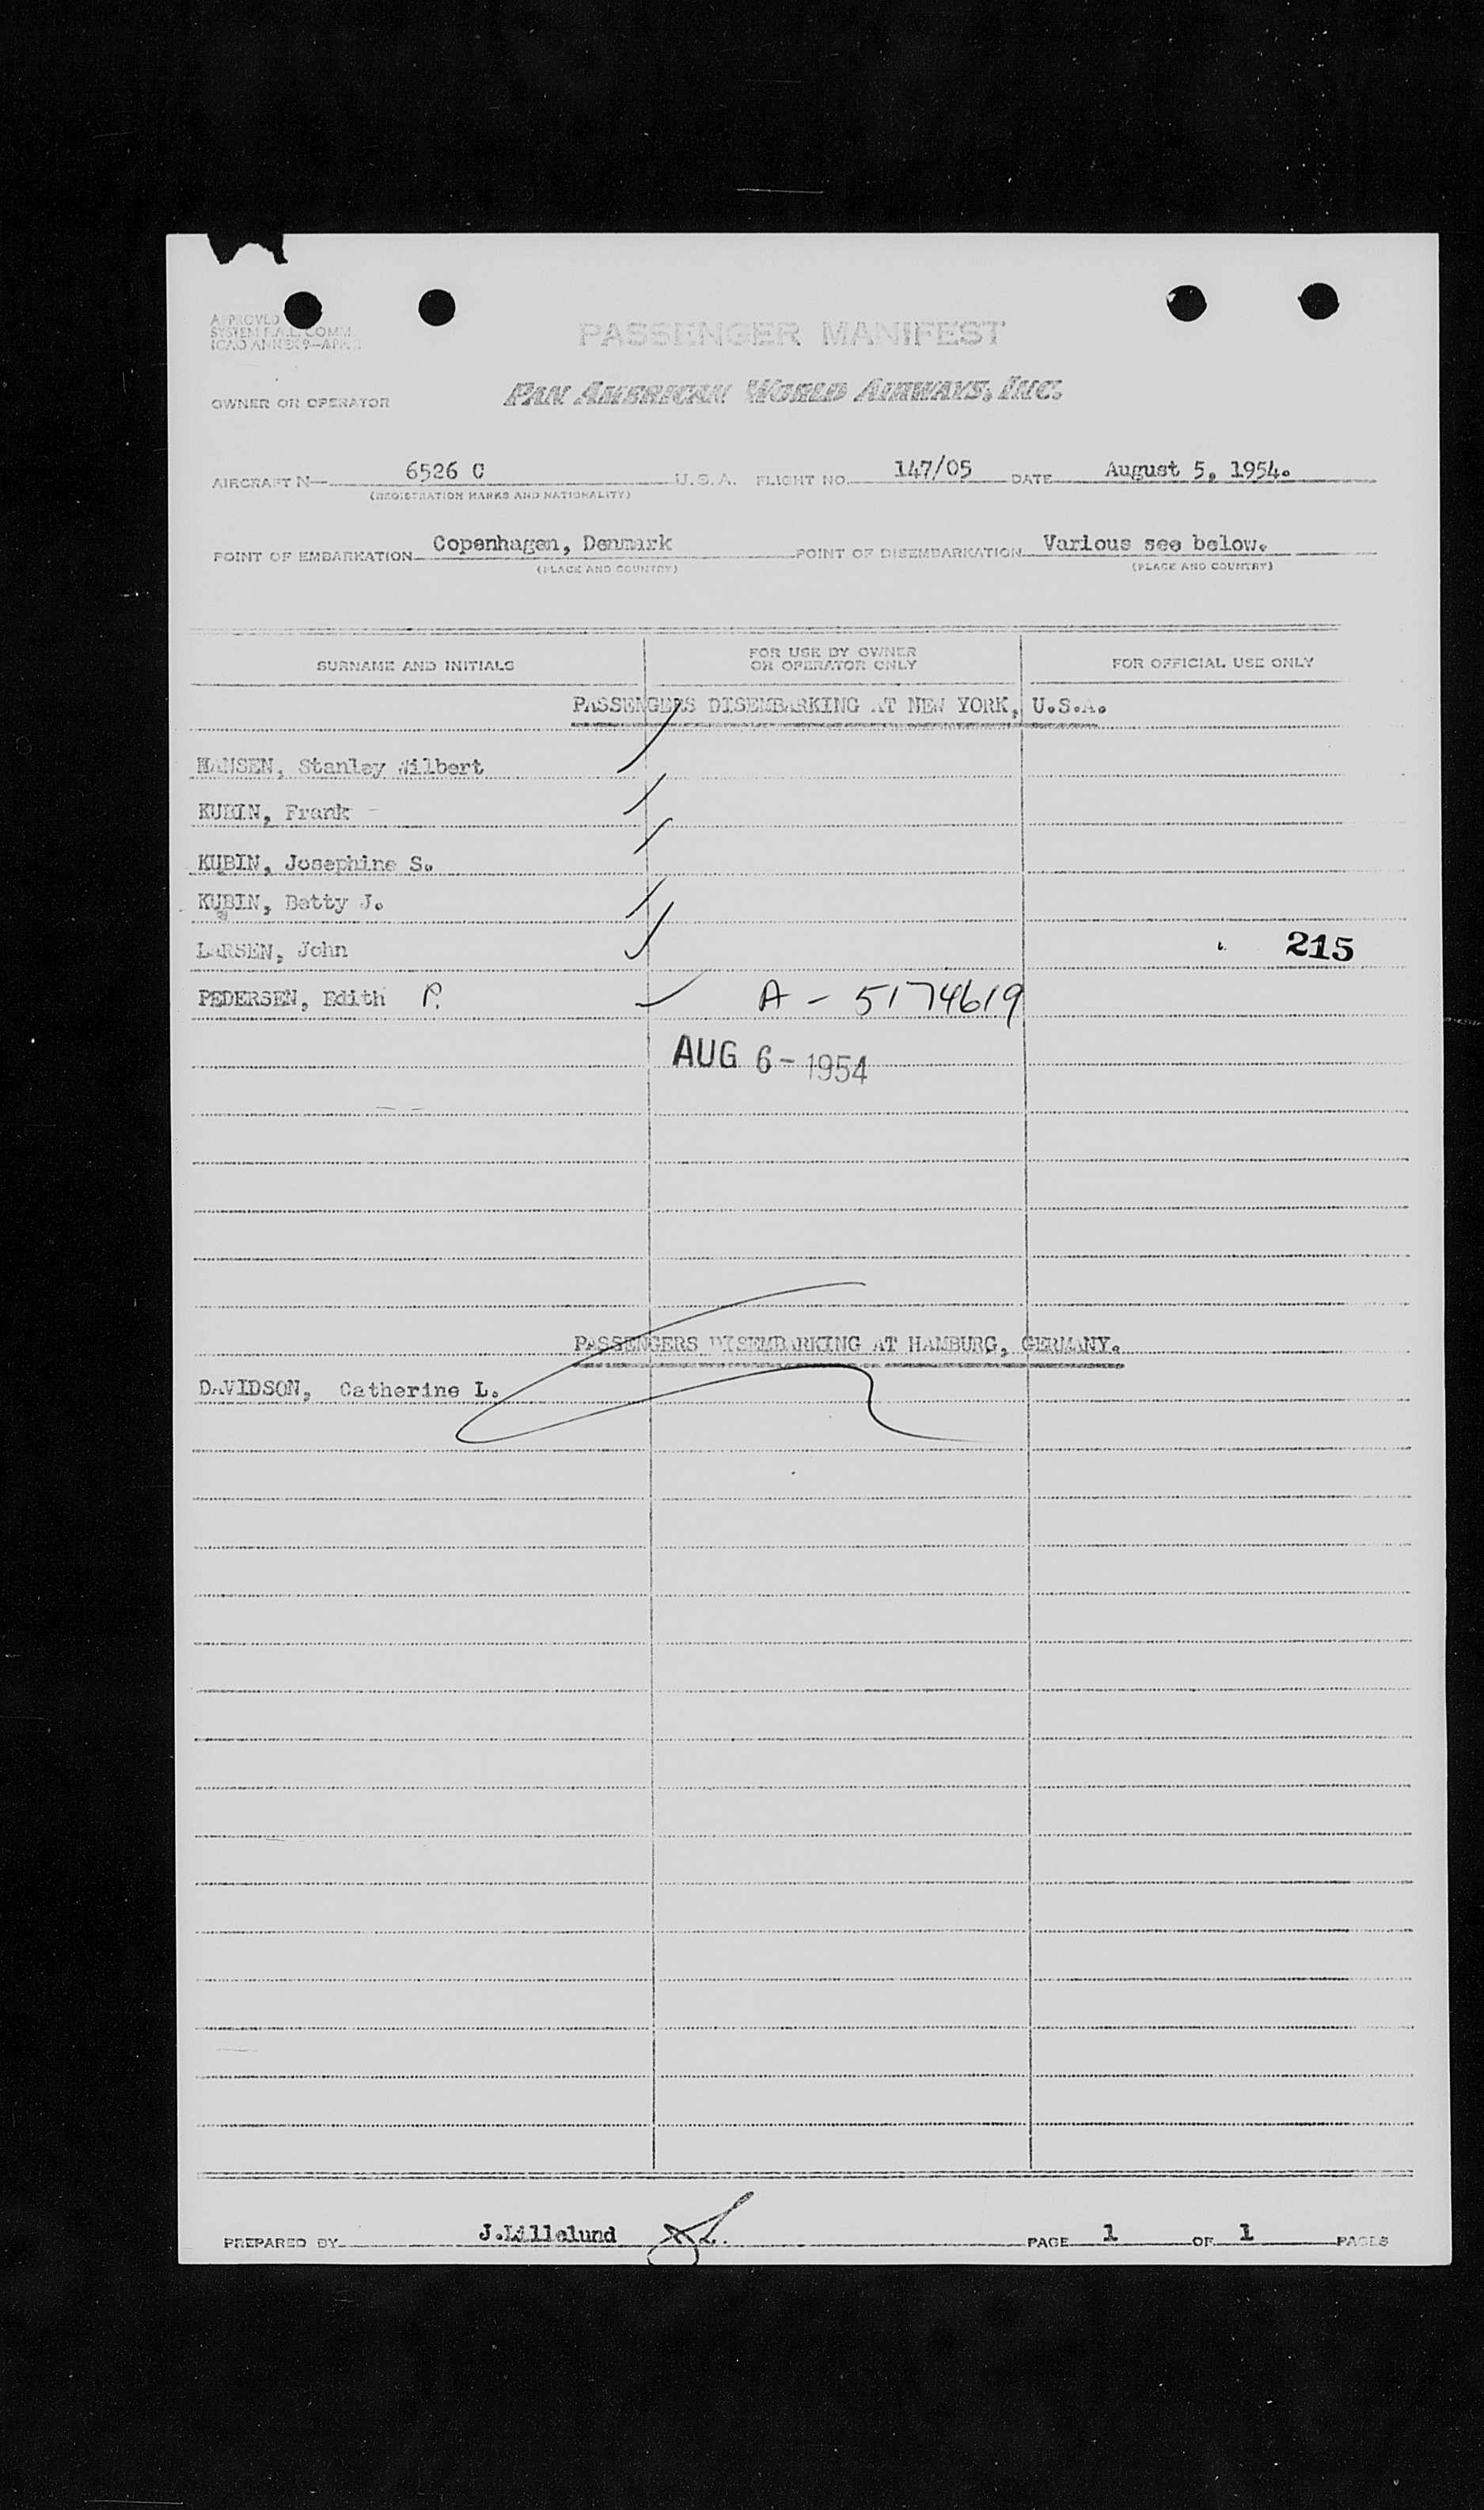 APPROVED
SYSTEM F.A.L. COMM.
ICAO ANNEX 9—APP.
PASSENGER MANIFEST
OWNER OR OPERATOR PAN AMERICAN WORLD AIRWAYS, INC.
AIRCRAFT N— 6526 C U.S.A. FLIGHT NO. 147/05 DATE August 5, 1954.
(REGISTRATION MARKS AND NATIONALITY)
POINT OF EMBARKATION Copenhagen, Denmark POINT OF DISEMBARKATION Various see below.
(PLACE AND COUNTRY) (PLACE AND COUNTRY)
SURNAME AND INITIALS FOR USE BY OWNER OR OPERATOR ONLY FOR OFFICIAL USE ONLY
PASSENGERS DISEMBARKING AT NEW YORK, U.S.A.
HANSEN, Stanley Wilbert
KUBIN, Frank
KUBIN, Josephine S.
KUBIN, Betty J.
LARSEN, John 215
PEDERSEN, Edith P. A - 5174619
AUG 6 - 1954
PASSENGERS DISEMBARKING AT HAMBURG, GERMANY.
DAVIDSON, Catherine L.
PREPARED BY J.Lillelund JL. PAGE 1 OF 1 PAGES